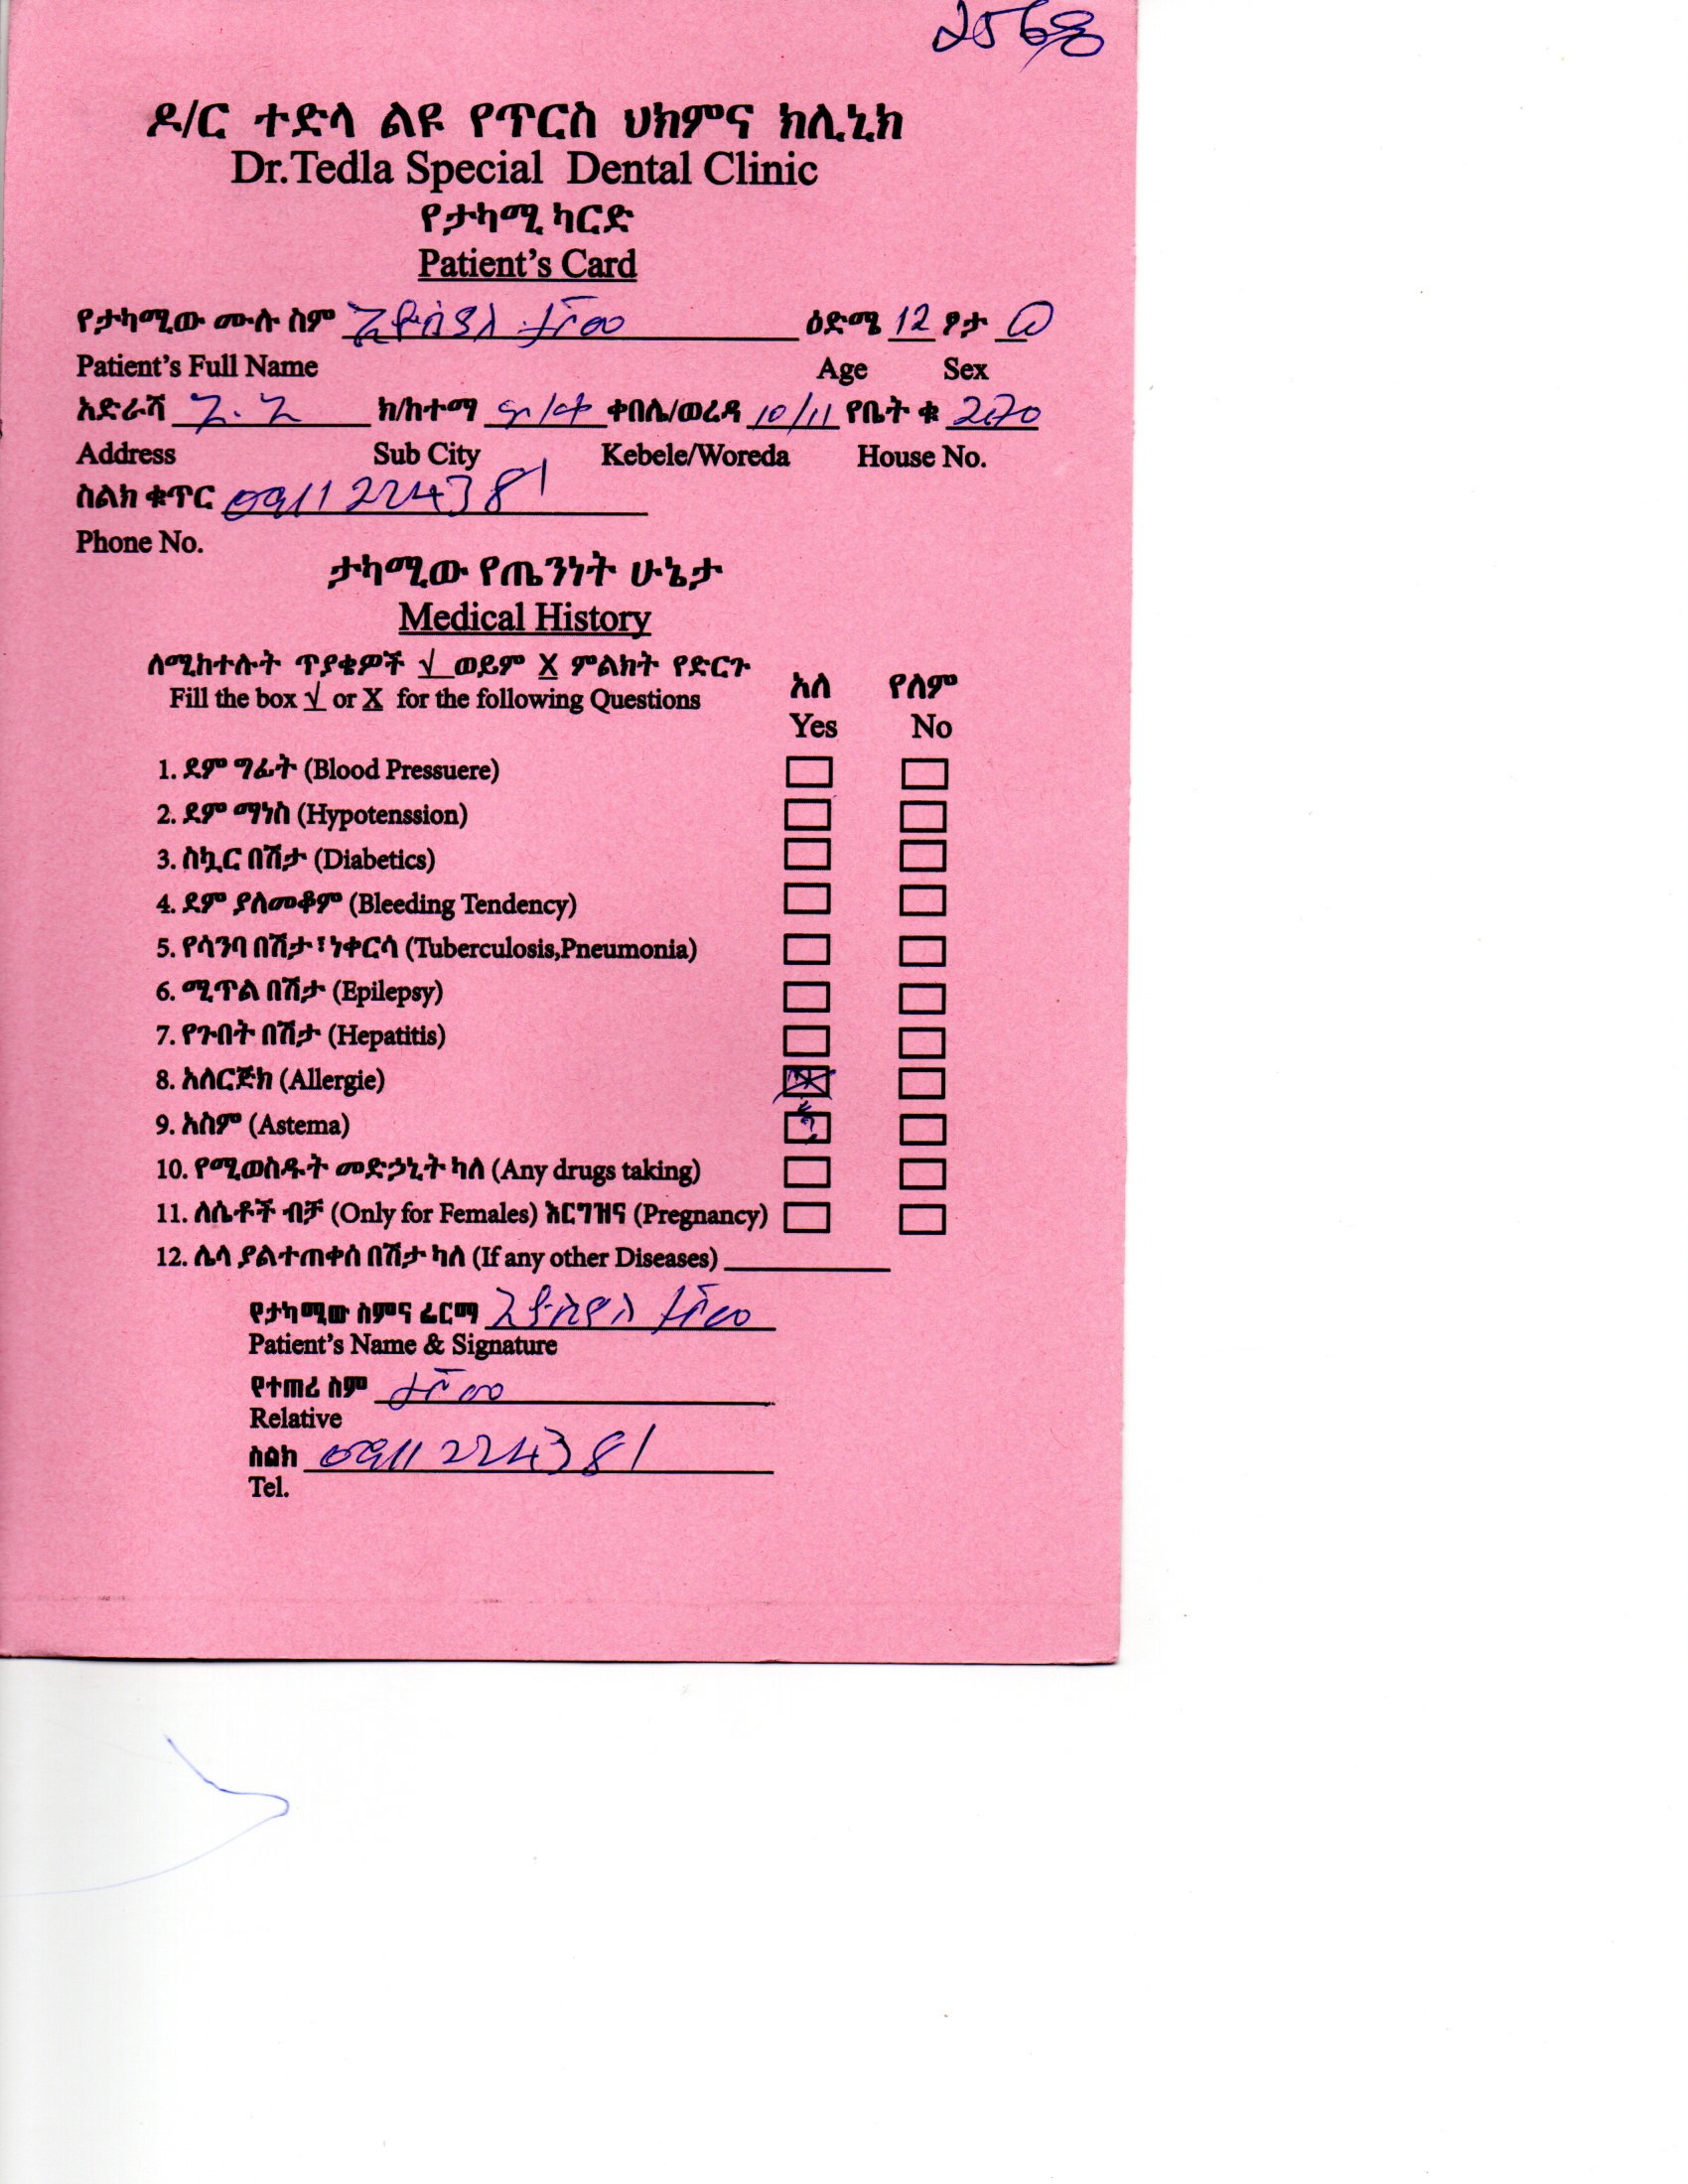 2568
ዶ/ር ተድላ ልዩ የጥርስ ህክምና ክሊኒክ
Dr.Tedla Special Dental Clinic
የታካሚ ካርድ
Patient's Card
የታካሚው ሙሉ ስም ዕድሜ 12 ፆታ
Patient's Full Name Age Sex
አድራሻ ክ/ከተማ ቀበሌ/ወረዳ 10/11 የቤት ቁ 2170
Address Sub City Kebele/Woreda House No.
ስልክ ቁጥር 0911224381
Phone No.
ታካሚው የጤንነት ሁኔታ
Medical History
ለሚከተሉት ጥያቄዎች √ ወይም X ምልክት የድርጉ
Fill the box √ or X for the following Questions
አለ የለም
Yes No
1. ደም ግፊት (Blood Pressuere)
2. ደም ማነስ (Hypotenssion)
3. ስኳር በሽታ (Diabetics)
4. ደም ያለመቆም (Bleeding Tendency)
5. የሳንባ በሽታ፣ነቀርሳ (Tuberculosis,Pneumonia)
6. ሚጥል በሽታ (Epilepsy)
7. የጉበት በሽታ (Hepatitis)
8. አለርጅክ (Allergie)
9. አስም (Astema)
10. የሚወስዱት መድኃኒት ካለ (Any drugs taking)
11. ለሴቶች ብቻ (Only for Females) እርግዝና (Pregnancy)
12. ሌላ ያልተጠቀሰ በሽታ ካለ (If any other Diseases)
የታካሚው ስምና ፊርማ
Patient's Name & Signature
የተጠሪ ስም
Relative
ስልክ 0911224381
Tel.